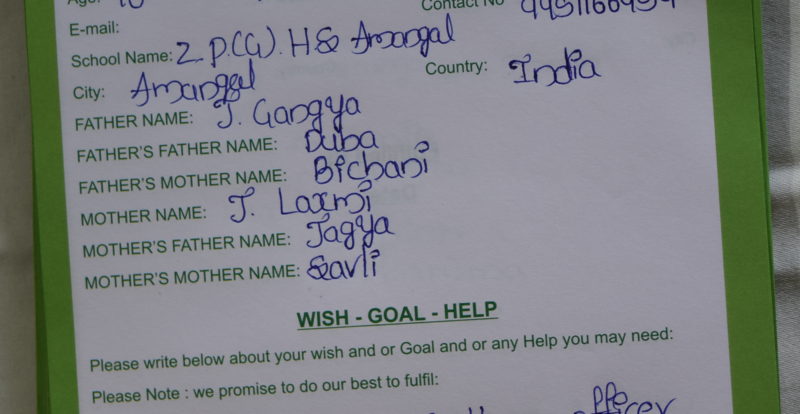 Age: 10 Contact No 9951166954
E-mail:
School Name: Z P.(G). H S Amangal
City: Amangal Country: India
FATHER NAME: J. Gangya
FATHER'S FATHER NAME: Duba
FATHER'S MOTHER NAME: Bichani
MOTHER NAME: J. Laxmi
MOTHER'S FATHER NAME: Jagya
MOTHER'S MOTHER NAME: Savli
WISH - GOAL - HELP
Please write below about your wish and or Goal and or any Help you may need:
Please Note : we promise to do our best to fulfil:
officer